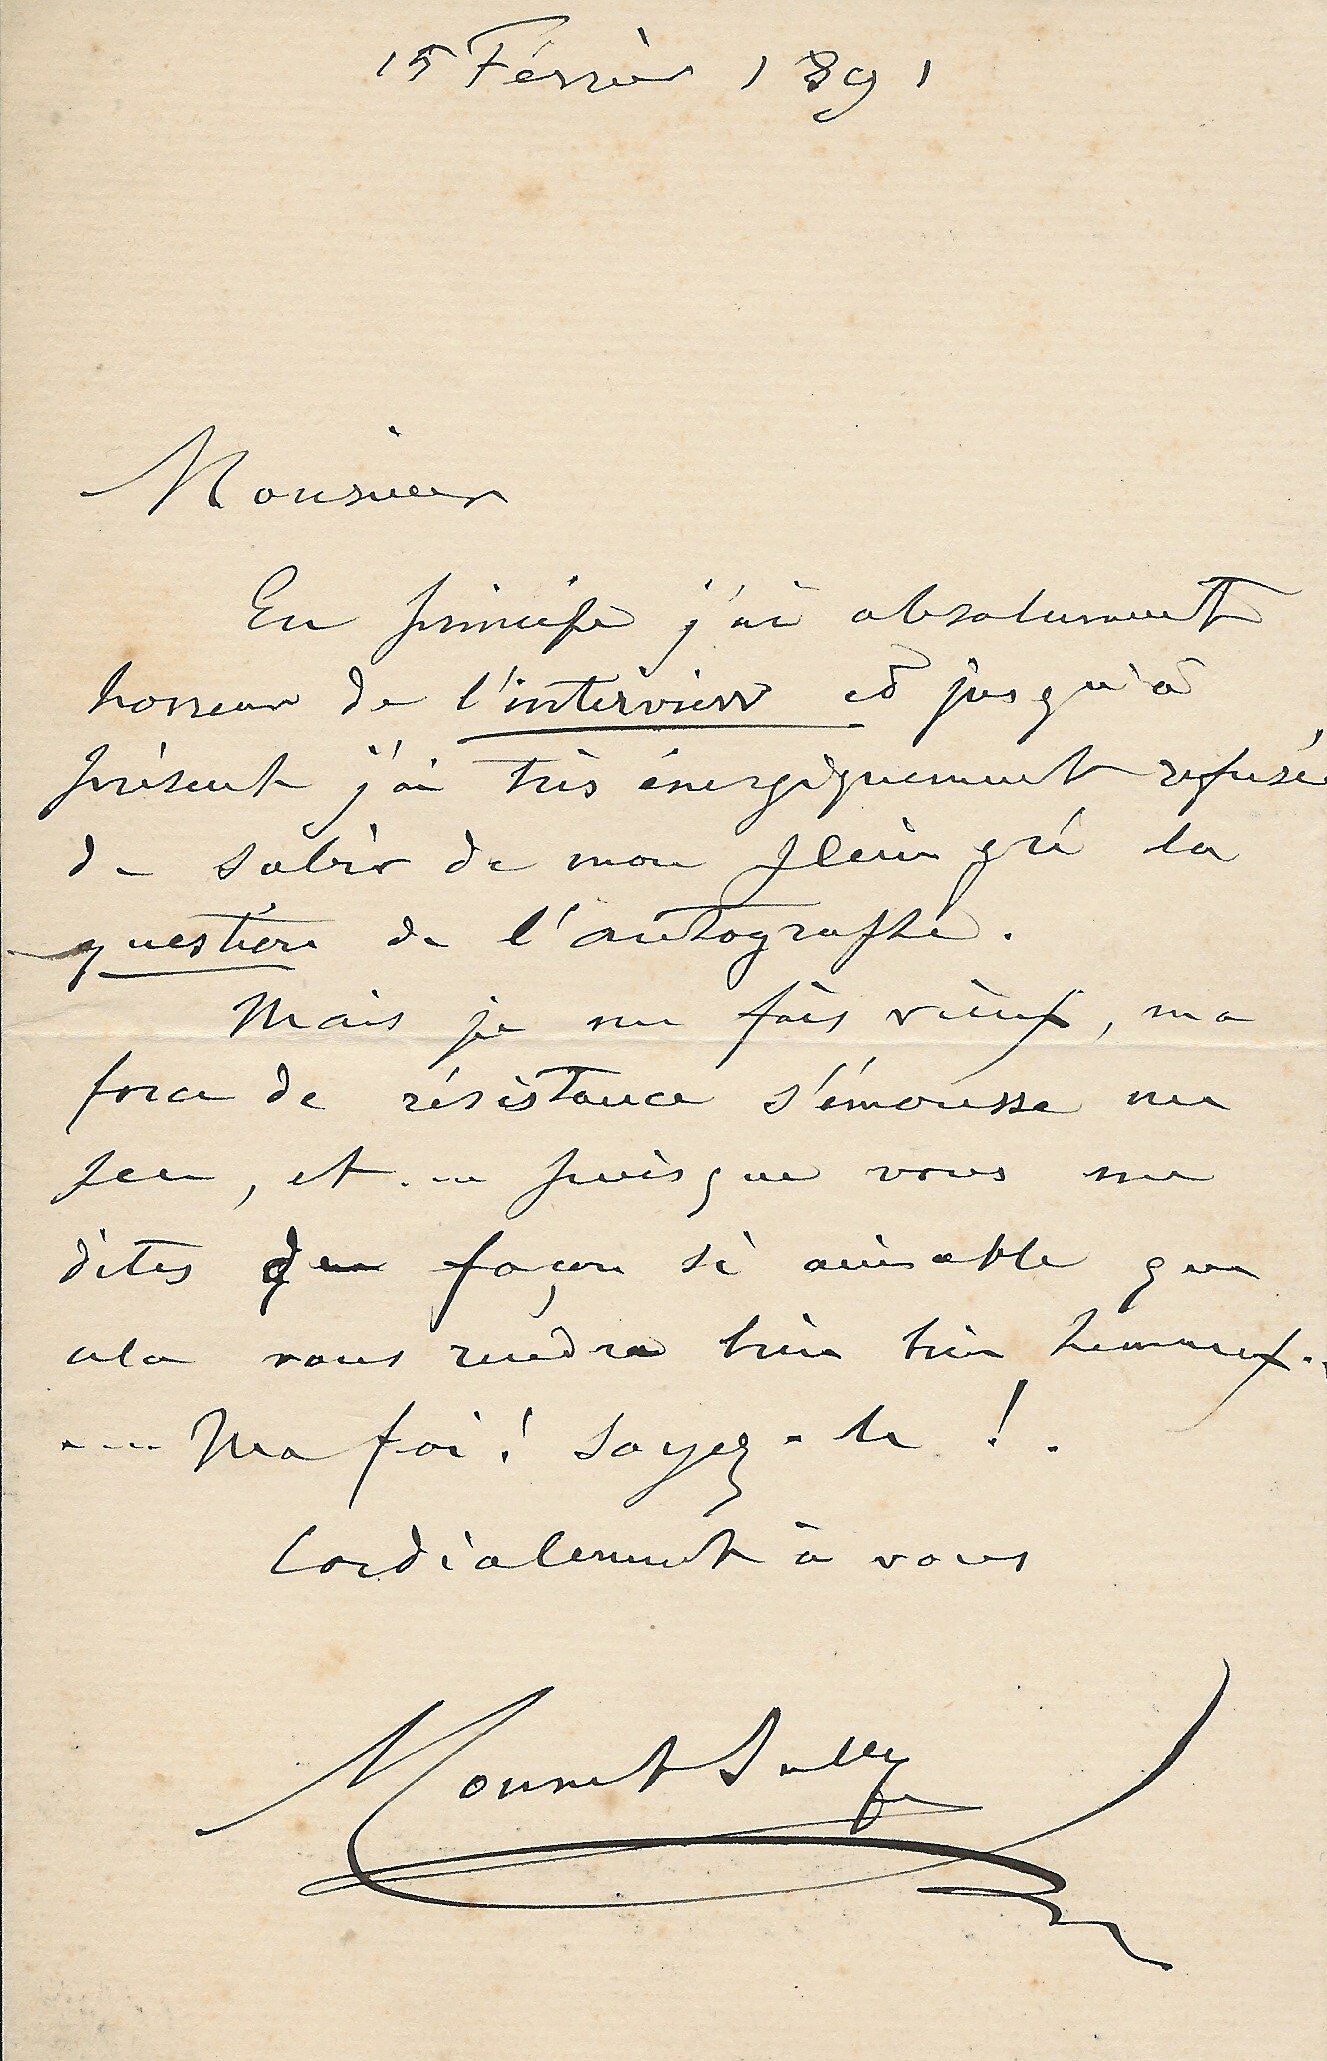 15 Février 1891
Monsieur
En principe j'ai absolument
horreur de l'interview et jusqu'à
présent j'ai très énergiquement refusé
de subir de mon plein gré la
question de l'autographe.
Mais je me fais vieux, ma
force de résistance s'émousse un
peu, et ... puisque vous me
dites de façon si aimable que
cela vous rendra bien bien heureux..
.... Ma foi! soyez-le!.
Cordialement à vous
Mounet Sully